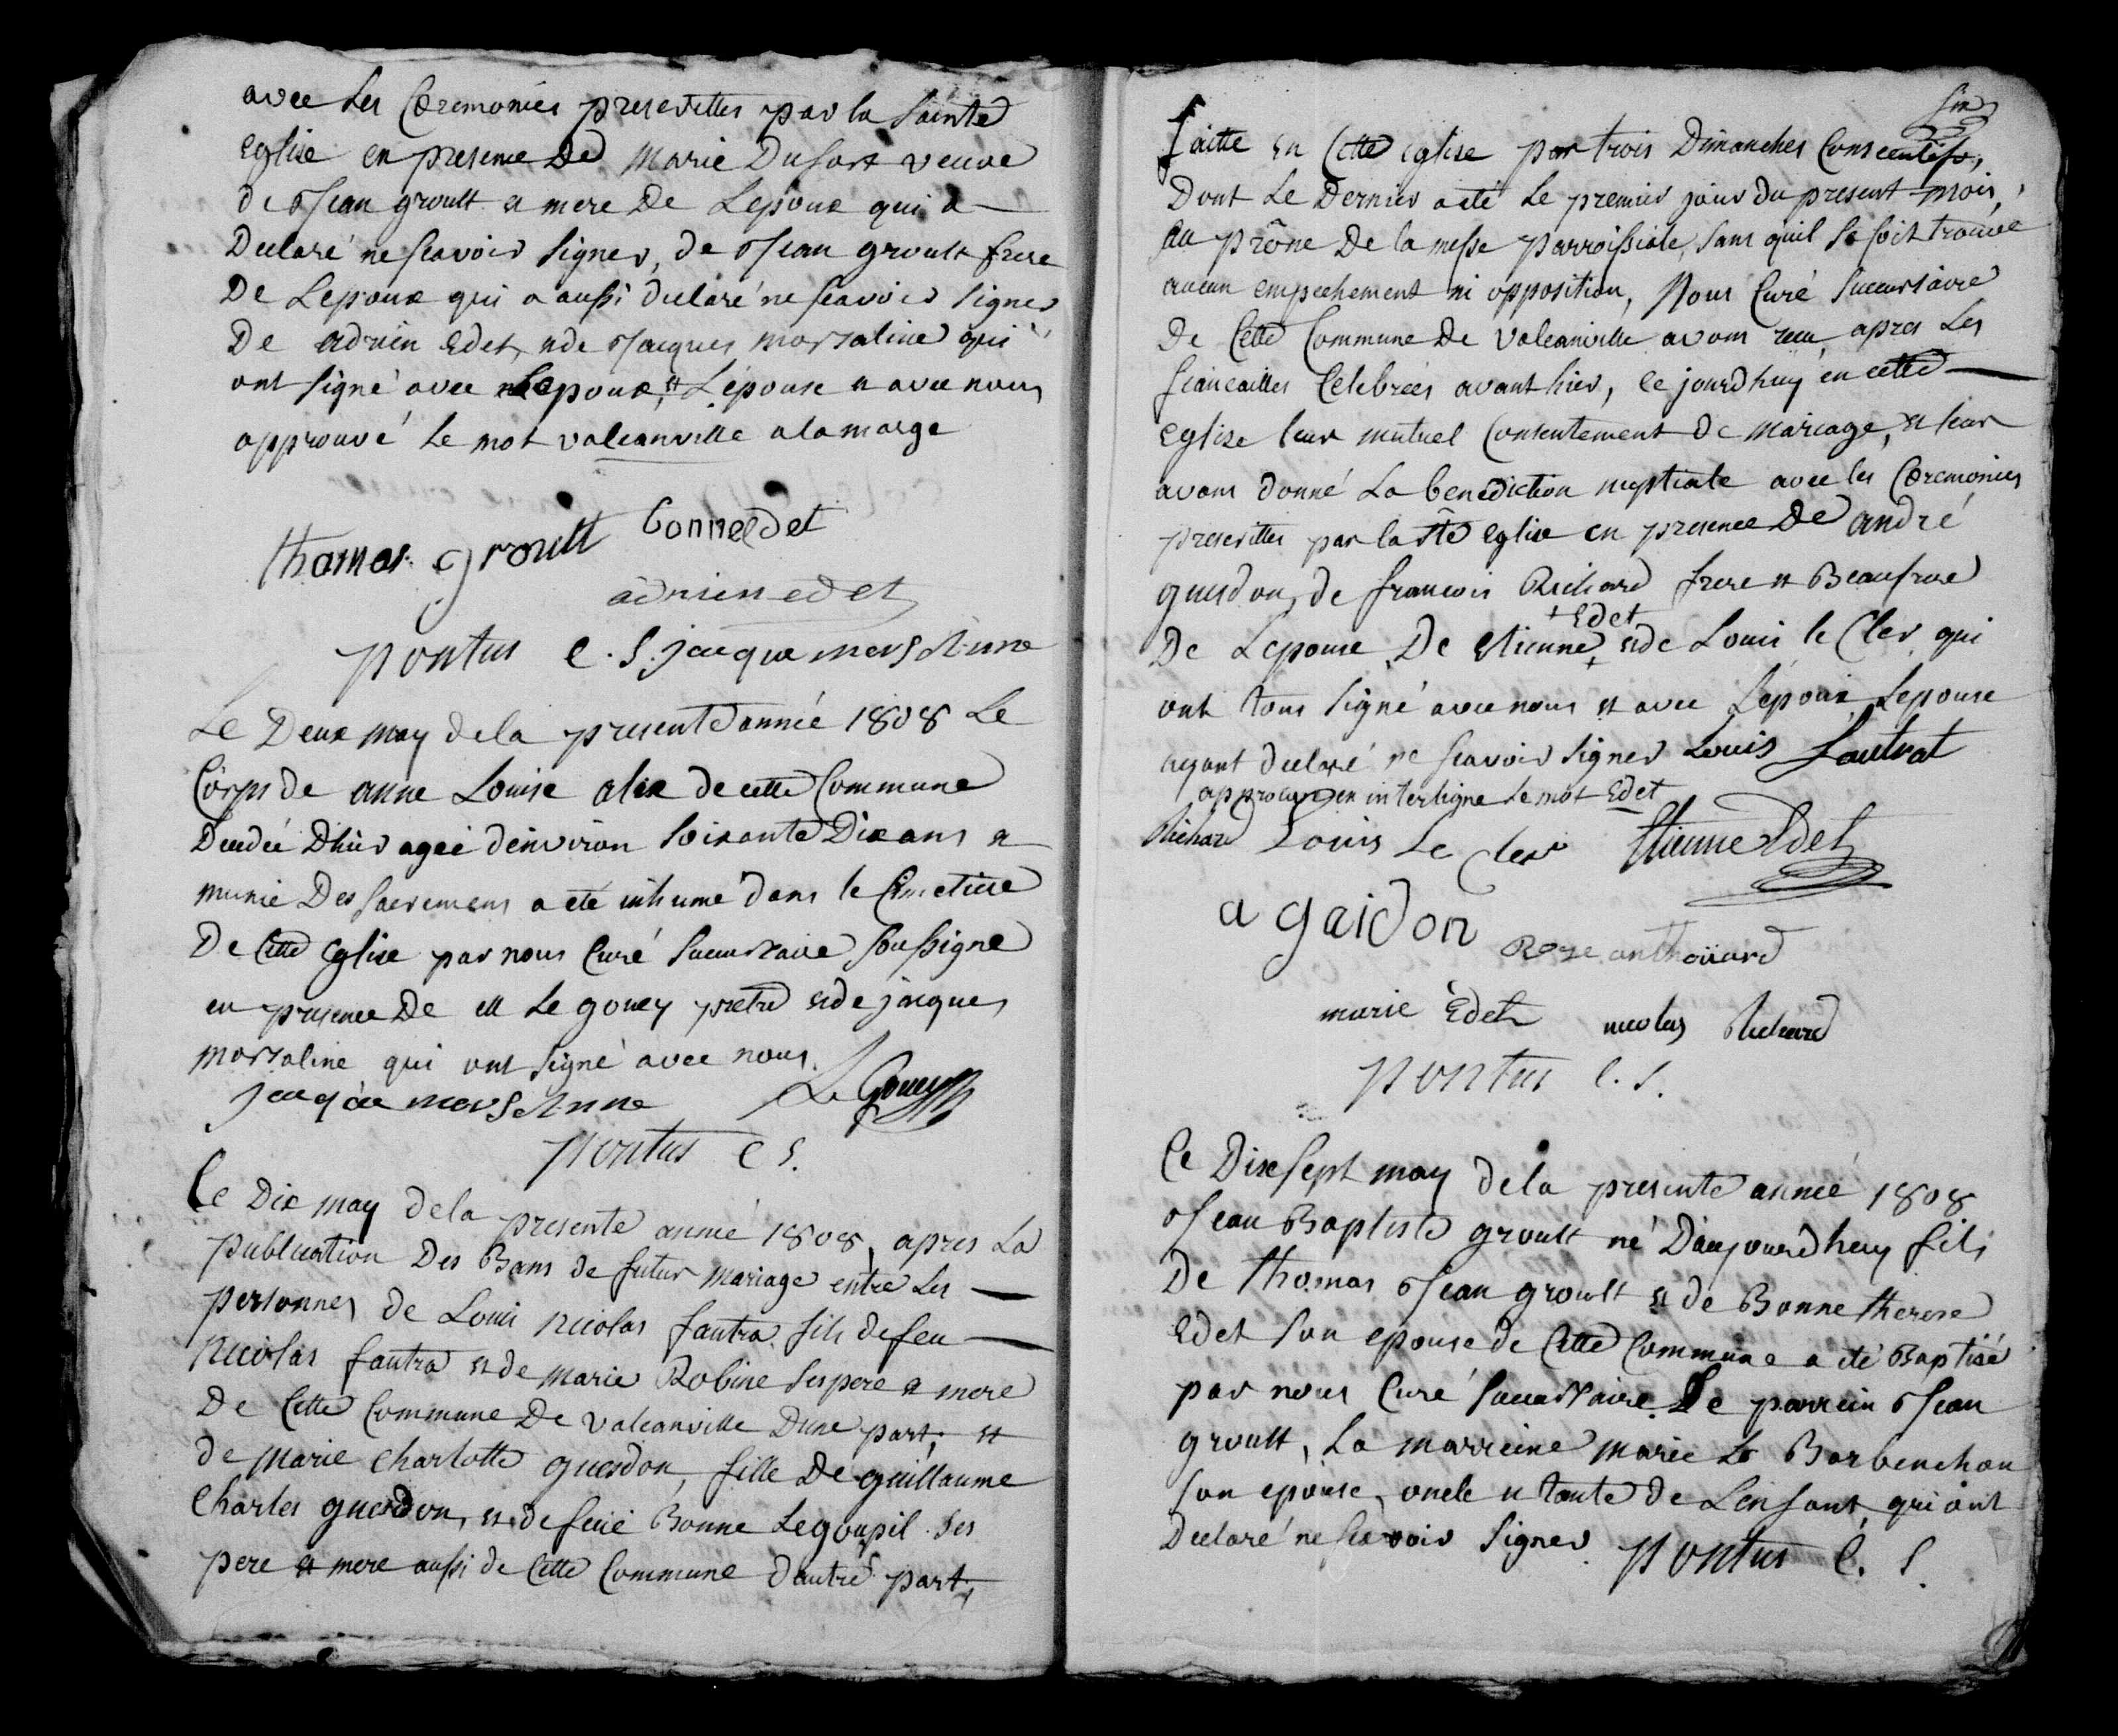 avec les Cœremonies prescrittes par la Sainte
Eglise en presence De Marie Dufort veuve
de Jean groult et mere De Lepoux qui a
Declaré ne scavoir signer, de Jean groult frere
De Lepoux qui a aussi declaré ne scavoir signer
De adrien Edet, et de Jacques morsaline qui
ont signé avec Lepoux, et Lépouse et avec nous
approuvé le mot valcanville a la marge
thomas groult bonne edet
adrien edet
pontus C. S. jacque morsaline
Le Deux may de la presente année 1808 Le
Corps de anne Louise alix de cette Commune
Decedée D'hier agée d'environ soixante Dix ans et
munie Des sacremens a eté inhumé dans le Cimetiere
De Cette Eglise par nous Curé succursaire soussigné
en presence De M Le gouey pretre et de jacques
morsaline qui ont signé avec nous.
jacque morsaline Le Gouey
Pontus C S.
Le Dix may de la presente année 1808, apres La
publication Des Bans de futur mariage entre Les
personnes de Louis Nicolas fautra fils de feu
Nicolas fautra et de Marie Robine ses pere et mere
De Cette Commune De valcanville D'une part, et
de Marie Charlotte guesdon, fille De guillaume
Charles guesdon, et de feüe Bonne Legoupil ses
pere et mere aussi de Cette Commune d'autre part,
six
faitte en Cette eglise par trois Dimanches Consecutifs,
Dont Le Dernier a eté Le premier jour du present mois,
au prône De la messe parroissiale, sans quil se soit trouvé
aucun empechement ni opposition, Nous Curé succursaire
de Cette Commune De valcanville avons recu, apres Les
fiancailles Celebrées avant hier, ce jourd'huy en cette
Eglise leur mutuel Consentement de mariage, et leur
avons donné La benediction nuptiale avec les Cœremonies
prescrittes par la Ste Eglise en presence De andré
guesdon, de francois Richard frere et Beaufrere
+ Edet
De Lepouse, De Etienne + et de Louis le Cler qui
ont tous signé avec nous et avec Lepoux, Lepouse
ayant declaré ne scavoir signer Louis Fautrat
approuvé en interligne le mot Edet
Richard Louis Le Cler Etienne Edet
a gaidon Rose anthoüard
marie Edet nicolas Richard
pontus C. S.
Le Dix sept may de la presente année 1808
Jean Baptiste groult né D'aujourdhuy fils
De thomas Jean groult et de Bonne therese
Edet son epouse de Cette Commune a eté Baptisé
par nous Curé succursaire. Le parrein Jean
groult, La marreine Marie Le Barbenchon
son epouse, oncle et tante de Lenfant, qui ont
Declaré ne scavoir signer pontus C. S.